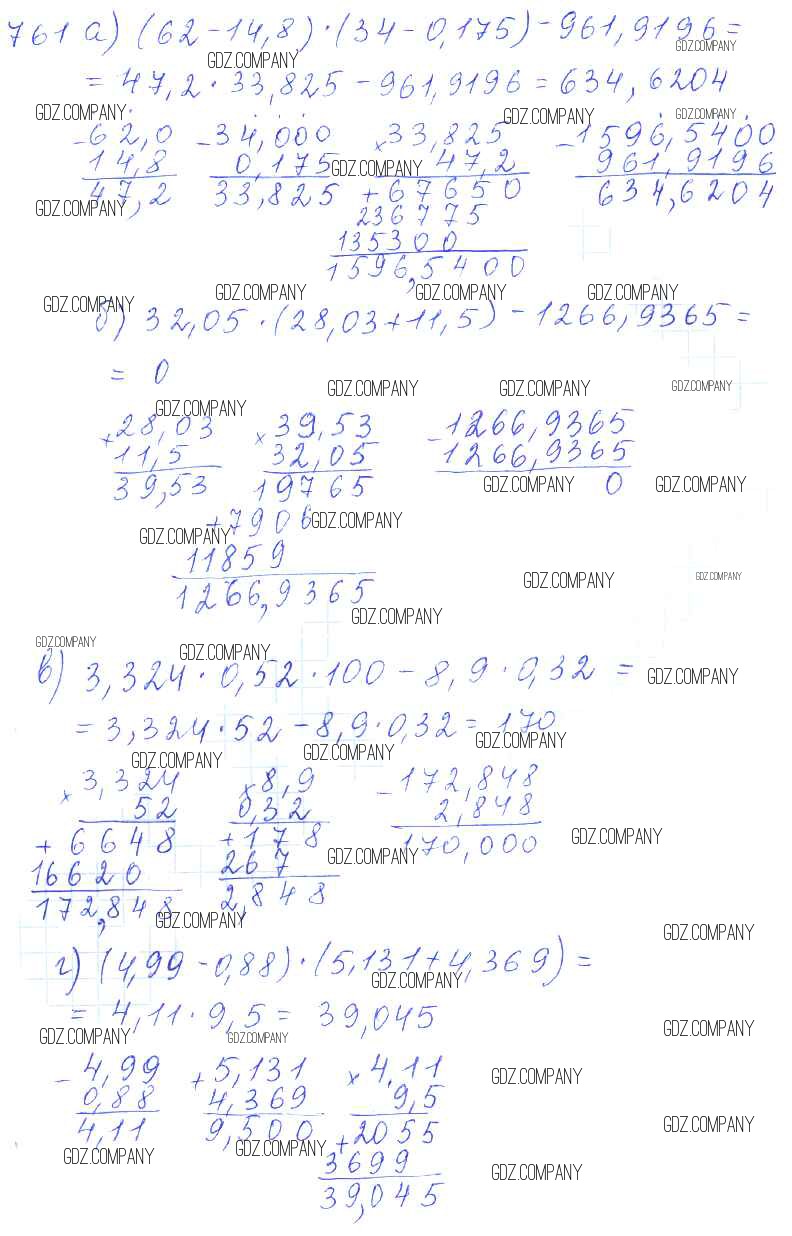 761 а) (62-14,8)·(34-0,175)-961,9196=
GDZ.COMPANY GDZ.COMPANY
= 47,2·33,825-961,9196=634,6204
GDZ.COMPANY GDZ.COMPANY GDZ.COMPANY
-62,0 -34,000 ×33,825 -1596,5400
14,8 0,175 GDZ.COMPANY 47,2 961,9196
47,2 33,825 +67650 634,6204
GDZ.COMPANY 236775
135300
1596,5400
GDZ.COMPANY GDZ.COMPANY GDZ.COMPANY GDZ.COMPANY
б) 32,05·(28,03+11,5)-1266,9365=
= 0
GDZ.COMPANY GDZ.COMPANY GDZ.COMPANY GDZ.COMPANY
+28,03 ×39,53 -1266,9365
11,5 32,05 1266,9365
39,53 19765 0
GDZ.COMPANY GDZ.COMPANY
+7906 GDZ.COMPANY
GDZ.COMPANY
11859
GDZ.COMPANY GDZ.COMPANY
1266,9365
GDZ.COMPANY
GDZ.COMPANY GDZ.COMPANY
в) 3,324·0,52·100-8,9·0,32=
GDZ.COMPANY
= 3,324·52-8,9·0,32=170
GDZ.COMPANY GDZ.COMPANY GDZ.COMPANY
×3,324 ×8,9 -172,848
52 0,32 2,848
+6648 +178 170,000
GDZ.COMPANY
16620 267 GDZ.COMPANY
172,848 2,848
GDZ.COMPANY GDZ.COMPANY
г) (4,99-0,88)·(5,131+4,369)=
GDZ.COMPANY
= 4,11·9,5= 39,045
GDZ.COMPANY GDZ.COMPANY GDZ.COMPANY
-4,99 +5,131 ×4,11 GDZ.COMPANY
0,88 4,369 9,5
4,11 9,500 +2055 GDZ.COMPANY
GDZ.COMPANY GDZ.COMPANY
3699 GDZ.COMPANY
39,045